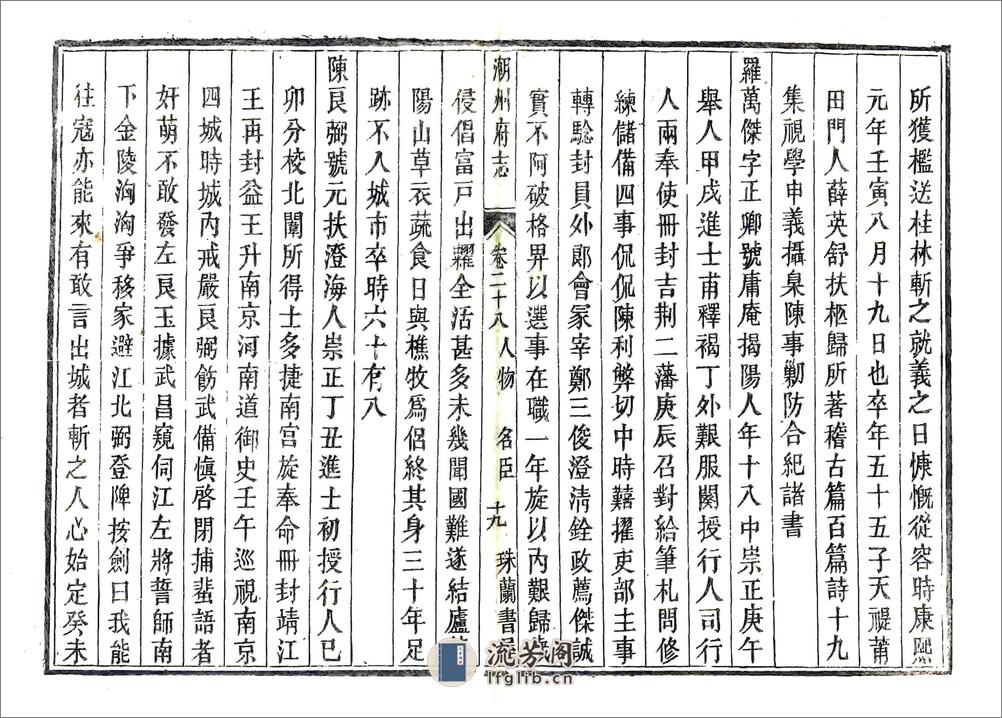 所獲檻送桂林斬之就義之日慷慨從容時康熙
元年壬寅八月十九日也卒年五十五子天禔莆
田門人薛英舒扶柩歸所著稽古篇百篇詩十九
集視學申義攝臬陳事勦防合紀諸書
羅萬傑字正卿號庸庵揭陽人年十八中崇正庚午
舉人甲戌進士甫釋褐丁外艱服闋授行人司行
人兩奉使冊封吉荆二藩庚辰召對給筆札問修
練儲備四事侃侃陳利弊切中時囏擢吏部主事
轉騐封員外郞會冢宰鄭三俊澄清銓政薦傑誠
實不阿破格畀以選事在職一年旋以內艱歸歲
潮州府志 卷二十八 人物 名臣 十九 珠蘭書
侵倡富戸出糶全活甚多未幾聞國難遂結廬
陽山草衣蔬食日與樵牧爲侶終其身三十年足
跡不入城市卒時六十有八
陳良弼號元扶澄海人崇正丁丑進士初授行人已
卯分校北闈所得士多捷南宫旋奉命冊封靖江
王再封益王升南京河南道御史壬午巡視南京
四城時城內戒嚴良弼飭武備慎啓閉捕蜚語者
奸萌不敢發左良玉據武昌窺伺江左將誓師南
下金陵洶洶爭移家避江北弼登陴按劍曰我能
往寇亦能來有敢言出城者斬之人心始定癸未
流芳阁
lfglib.cn